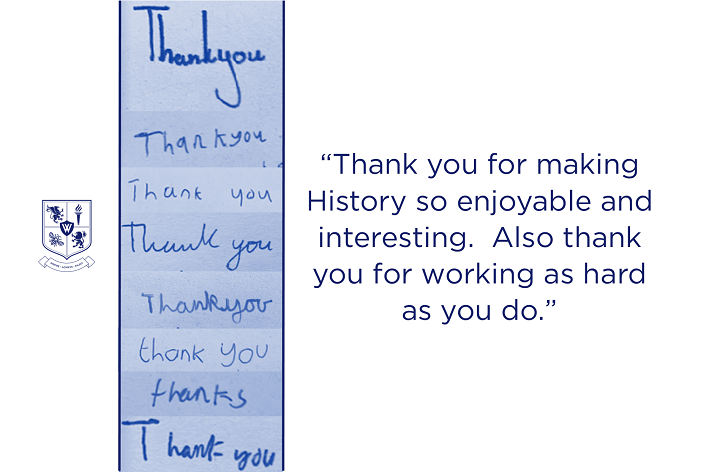 Thankyou
Thankyou
Thank you
Thank you
Thankyou
thank you
thanks
Thank you
W
“Thank you for making
History so enjoyable and
interesting.  Also thank
you for working as hard
as you do.”